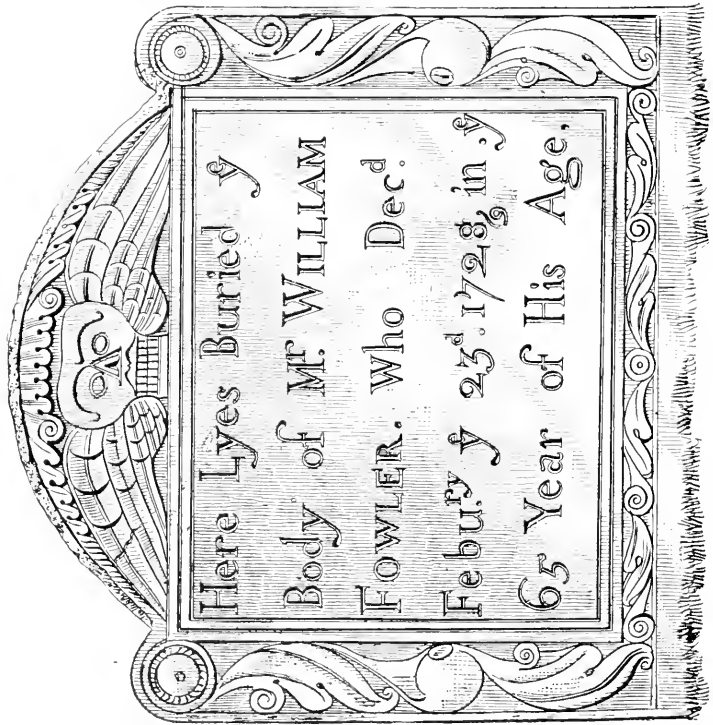 Here Lyes Buried yᵉ
Body of Mʳ. WILLIAM
FOWLER. Who Decᵈ.
Febuʳʸ. yᵉ 23ᵈ. 1728/9 in yᵉ
65 Year of His Age.